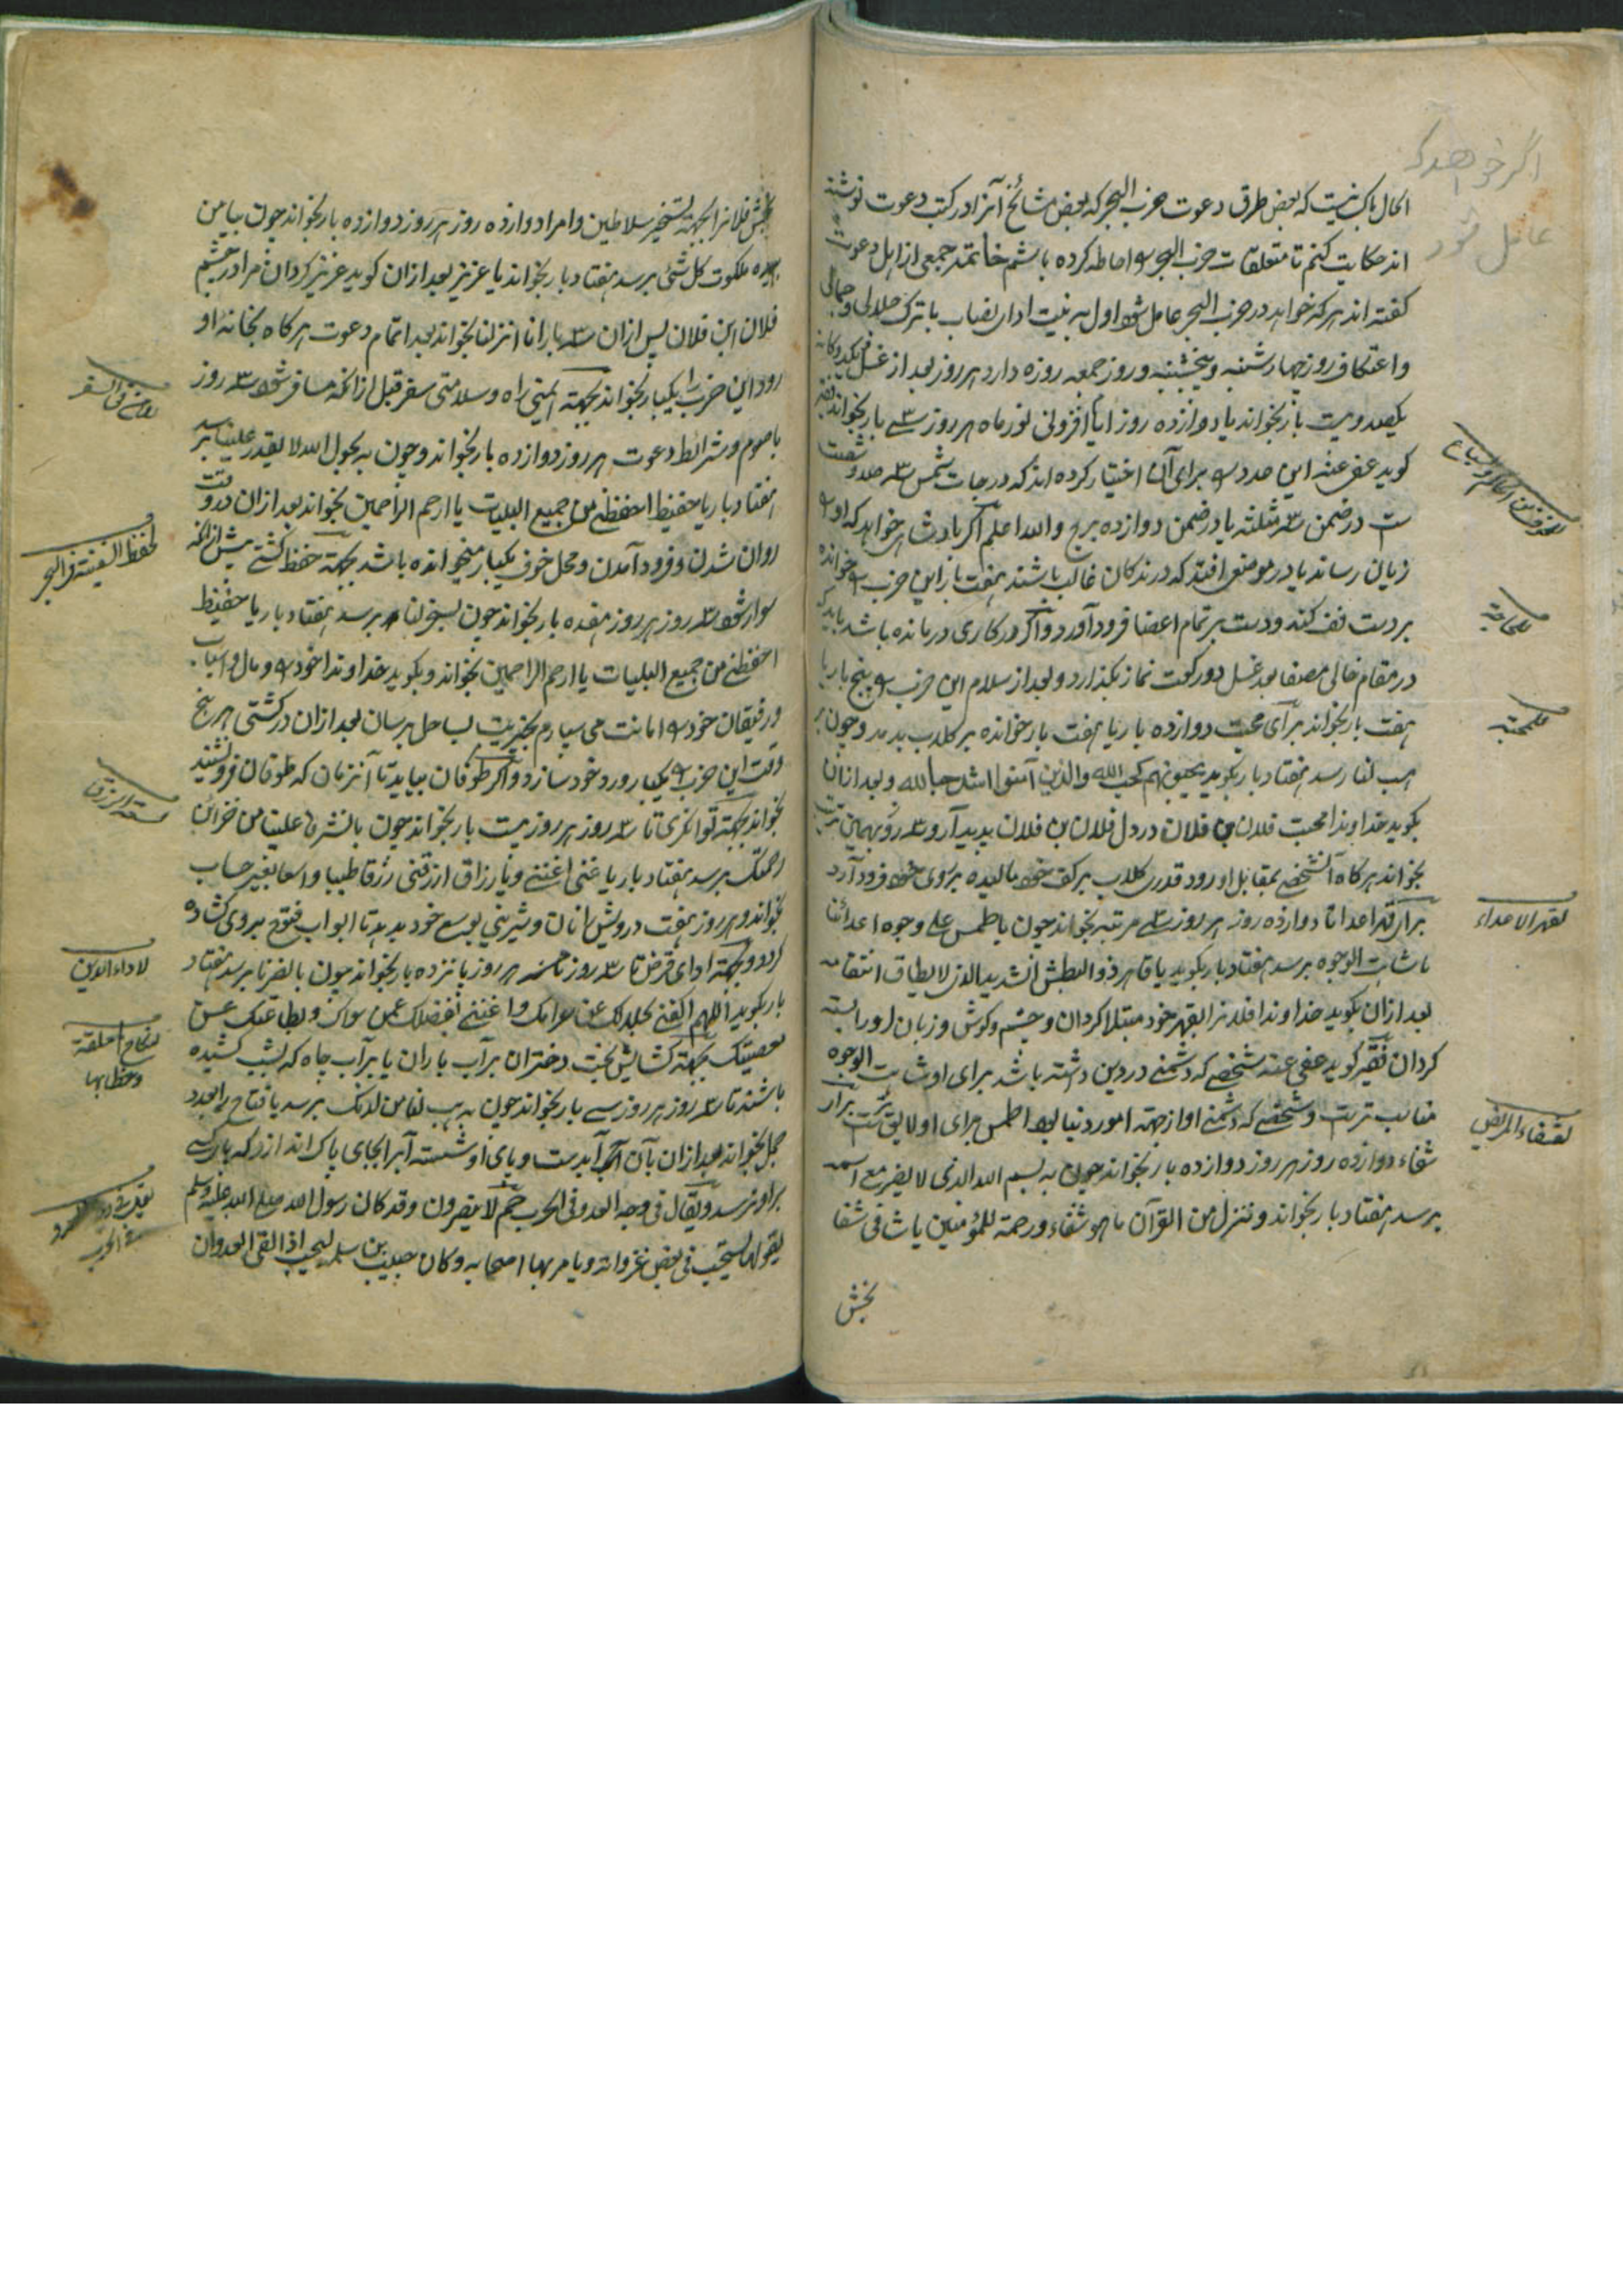 اگر خواهد کہ
عامل شود
الحال باک نیست که بعض طرق دعوت حزب البحر که بعض مشائخ آنرا در کتب دعوت نوشته
اند حکایت کنیم تا متعلقات حزب البحر را احاطه کرده باشم خاتمه جمعی از اهل دعوت
گفته اند هر که خواهد در حزب البحر عامل شود اول به نیت ادای نصاب با ترک جلالی و جمالی
واعتکاف روز چهارشنبه و پنجشنبه و روز جمعه روزه دارد هر روز بعد از غسل
یکصد و بیست بار بخواند یا دوازده روز ایام افزونی نور ماه هر روز سی بار بخواند فقیر
گوید عفی عنه این عدد را برای آن اختیار کرده اند که درجات شمس سه صد و شصت
ست در ضمن سه مثلثه یا در ضمن دوازده برج والله اعلم اگر بادشاهی خواهد که او را
زیان رساند یا در موضعی افتد که درندگان غالب باشند هفت بار این حزب را خوانده
بر دست تف کند و دست بر تمام اعضا فرود آورد و اگر در کاری درمانده باشد باید که
در مقام خالی مصفا بعد غسل دو رکعت نماز بگذارد و بعد از سلام این حزب را پنج بار یا
هفت بار بخواند برای محبت دوازده بار یا هفت بار خوانده بر گلاب بدمد و چون بر
هب لنا رسد هفتاد بار بگوید یحبونهم کحب الله والذین آمنوا اشد حبا لله و بعد ازان
بگوید خداوندا محبت فلان بن فلان در دل فلان بن فلان پدید آر و سه روز بهمین ترتیب
بخواند هر گاه آنشخص بمقابل او رود قدری گلاب بر کف خود مالیده بروی خود فرود آرد
برای قهر اعدا تا دوازده روز هر روز سی مرتبه بخواند چون باطمس علی وجوه اعدائنا
یا شاهت الوجوه برسد هفتاد بار بگوید یا قاهر ذو البطش الشدید الذی لا یطاق انتقامه
بعد ازان بگوید خداوندا فلانرا بقهر خود مبتلا گردان و چشم و گوش و زبان او را بسته
گردان فقیر گوید عفی عنه شخصی که دشمنی در دین داشته باشد برای او شاهت الوجوه
مناسب ترست و شخصی که دشمنی او از جهة امور دنیا بود اطمس برای او لایق ترست برای
شفاء دوازده روز هر روز دوازده بار بخواند چون به بسم الله الذی لا یضر مع اسمه
برسد هفتاد بار بخواند وننزل من القرآن ما هو شفاء ورحمة للمؤمنین یا شافی شفا
بخش
للمحبة
لقهر الاعداء
لشفاء المریض
بخش فلانرا بجهة تسخیر سلاطین و امرا دوازده روز هر روز دوازده بار بخواند چون بیا من
بیده ملکوت کل شئ برسد هفتاد بار بخواند یا عزیز بعد ازان گوید عزیز گردان مرا در چشم
فلان ابن فلان پس ازان سه بار انا انزلنا بخواند بعد اتمام دعوت هر گاه بخانه او
رود این حزب را یکبار بخواند بجهة ایمنی راه و سلامتی سفر قبل از انکه مسافر شود سه روز
با صوم و شرائط دعوت هر روز دوازده بار بخواند و چون به بحول الله لا یقدر علینا برسد
هفتاد بار یا حفیظ احفظنی من جمیع البلیات یا ارحم الراحمین بخواند بعد ازان در وقت
روان شدن و فرود آمدن و محل خوف یکبار میخوانده باشد بجهة حفظ کشتی پیش ازانکه
سوار شود سه روز هر روز هفده بار بخواند چون بسخر لنا برسد هفتاد بار یا حفیظ
احفظنی من جمیع البلیات یا ارحم الراحمین بخواند و بگوید خداوندا خود را و مال و اسباب
و رفیقان خود را امانت می سپارم بخیریت بساحل برسان بعد ازان در کشتی هر پنج
وقت این حزب را یکبار ورد خود سازد و اگر طوفان بیاید تا آنزمان که طوفان فرو نشیند
بخواند بجهة توانگری تا سه روز هر روز بیست بار بخواند چون بانشرها علینا من خزائن
رحمتک برسد هفتاد بار یا غنی اغننی ویا رزاق ارزقنی رزقا طیبا واسعا بغیر حساب
بخواند و هر روز هفت درویش را نان و شیرینی بوسع خود بدهد تا ابواب فتوح بروی گشاده
گردد و بجهة ادای قرض تا سه روز هر روز پانزده بار بخواند چون بانصرنا برسد هفتاد
بار بگوید اللهم اکفنی بحلالک عن حرامک واغننی بفضلک عمن سواک وبطاعتک عن
معصیتک بجهة گشایش بخت دختران بر آب باران یا بر آب چاه که بشب کشیده
باشند تا سه روز هر روز سی بار بخواند چون به هب لنا من لدنک برسد یا فتاح
بخواند بعد ازان بآن آب آبدست و پای او شسته آنرا بجای پاک اندازد که پای کسی
برو نرسد ویقال فی وجه العدو فی الحرب حم لا ینصرون وقد کان رسول الله صلی الله علیه وسلم
یقولها فی بعض غزواته ویامر بها اصحابه وکان حبیب بن سلمه یستحب اذا لقی العدو ان
للامن فی السفر
لحفظ السفینة فی البحر
لسعة الرزق
لاداء الدین